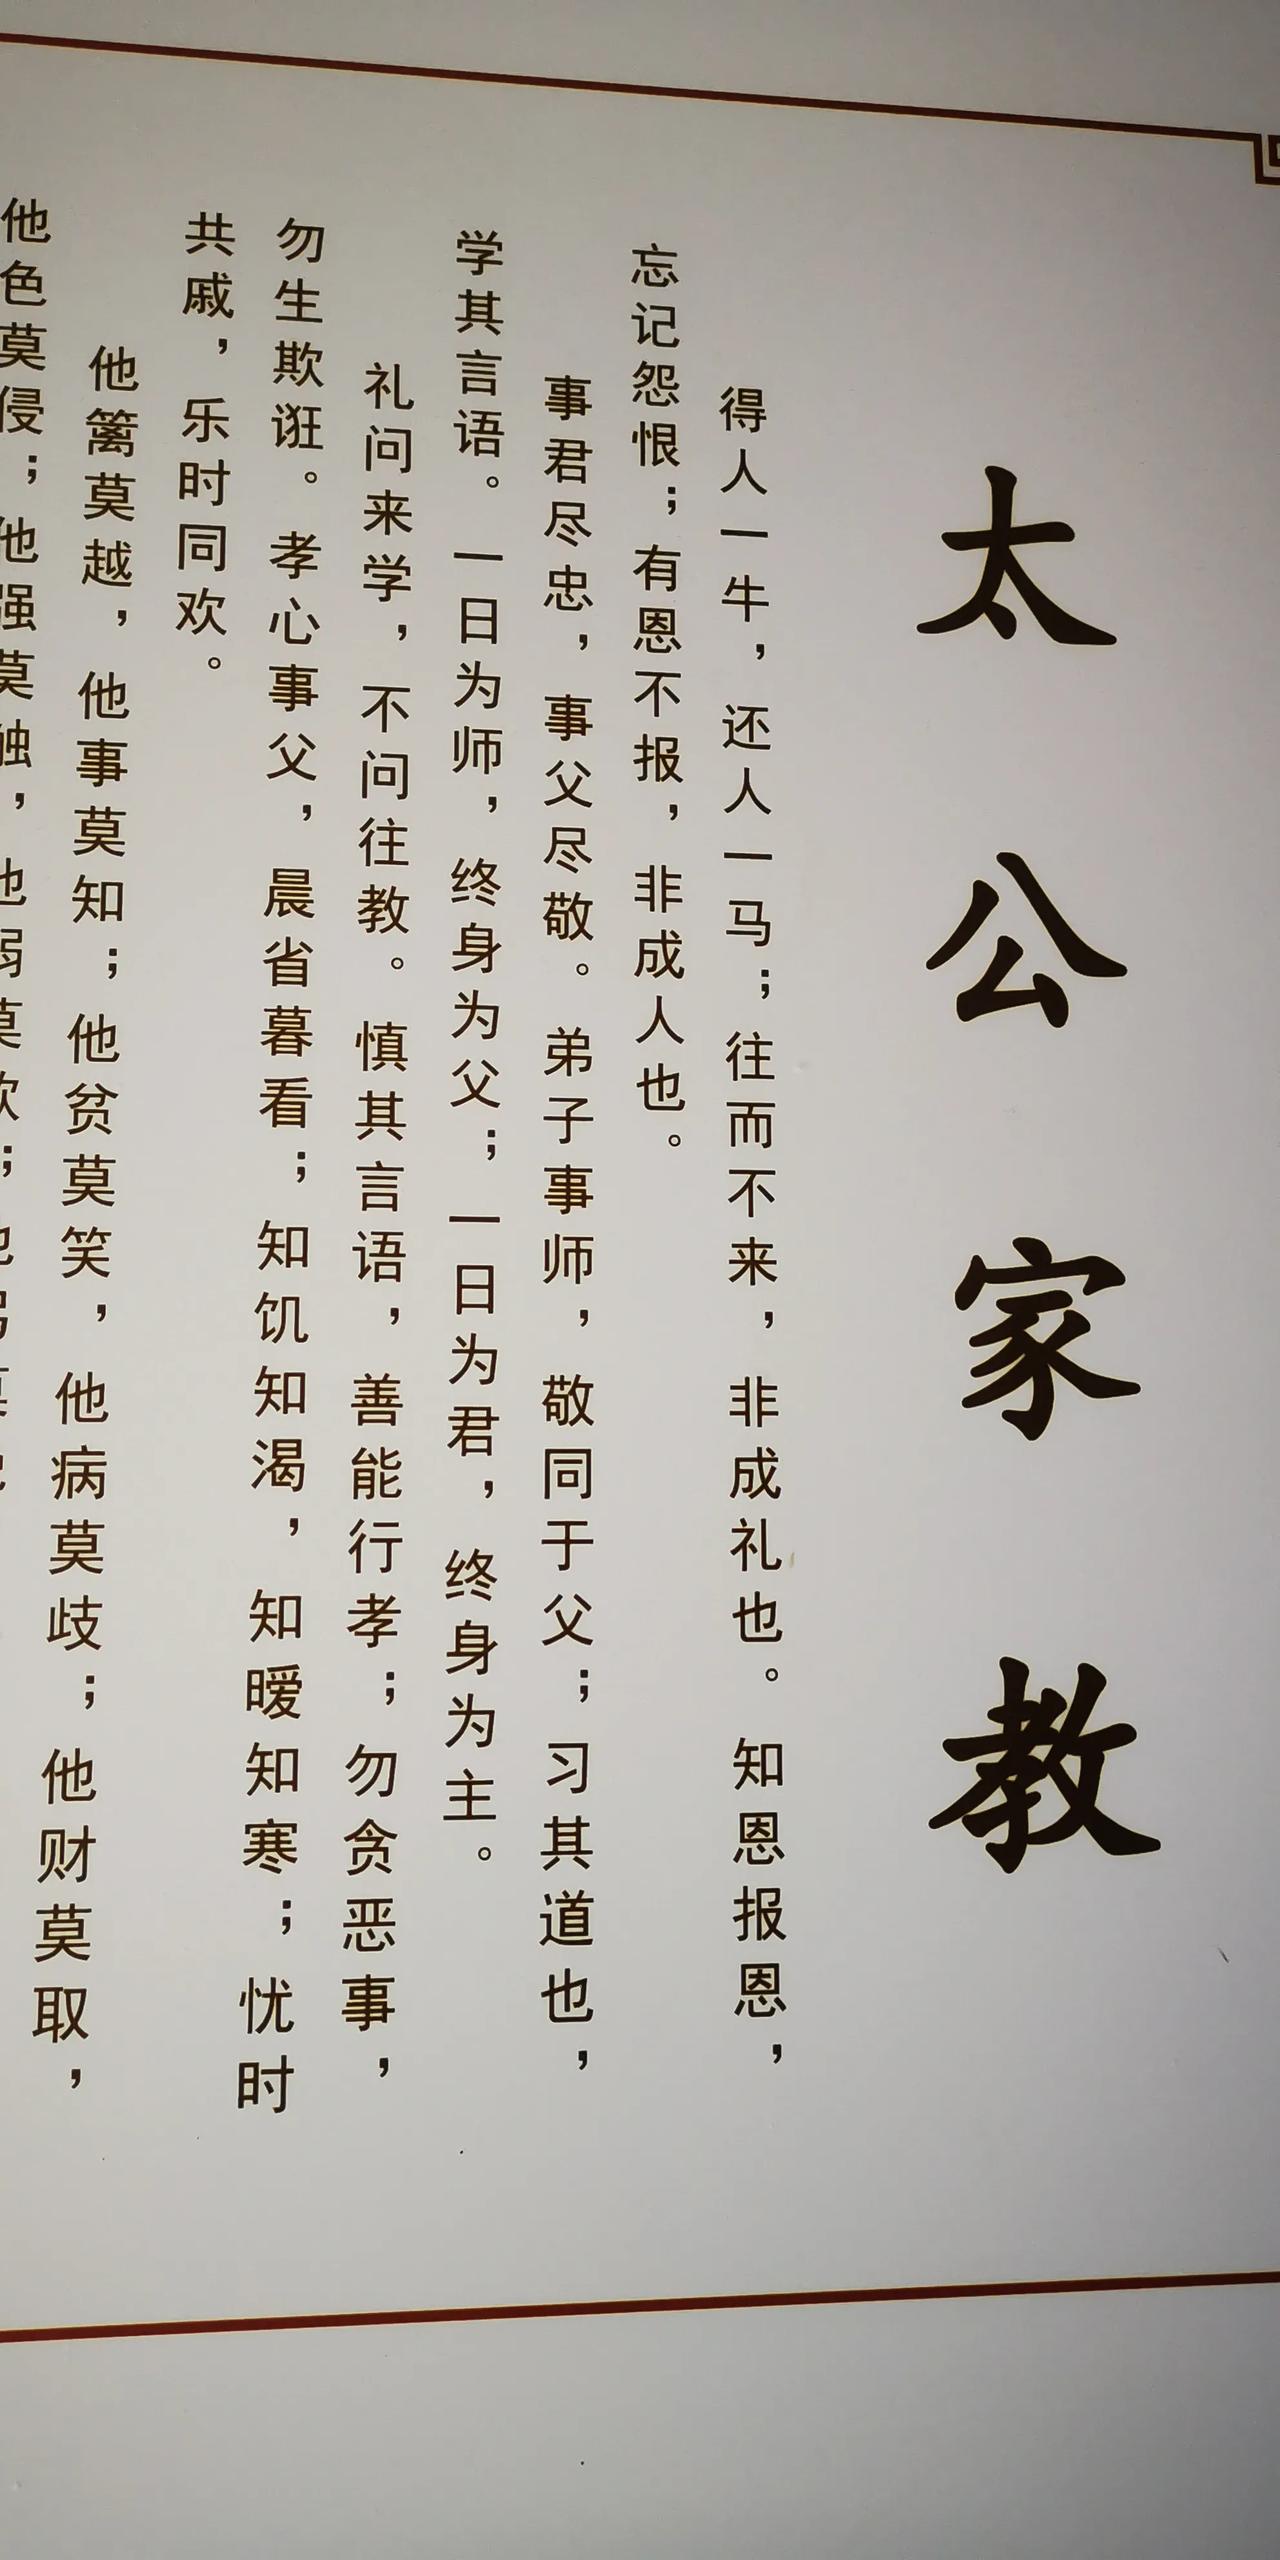 太公家教
得人一牛，还人一马；往而不来，非成礼也。知恩报恩，
忘记怨恨；有恩不报，非成人也。
事君尽忠，事父尽敬。弟子事师，敬同于父；习其道也，
学其言语。一日为师，终身为父；一日为君，终身为主。
礼问来学，不问往教。慎其言语，善能行孝；勿贪恶事，
勿生欺诳。孝心事父，晨省暮看；知饥知渴，知暖知寒；忧时
共戚，乐时同欢。
他篱莫越，他事莫知；他贫莫笑，他病莫歧；他财莫取，
他色莫侵；他强莫触，他弱莫欺；他